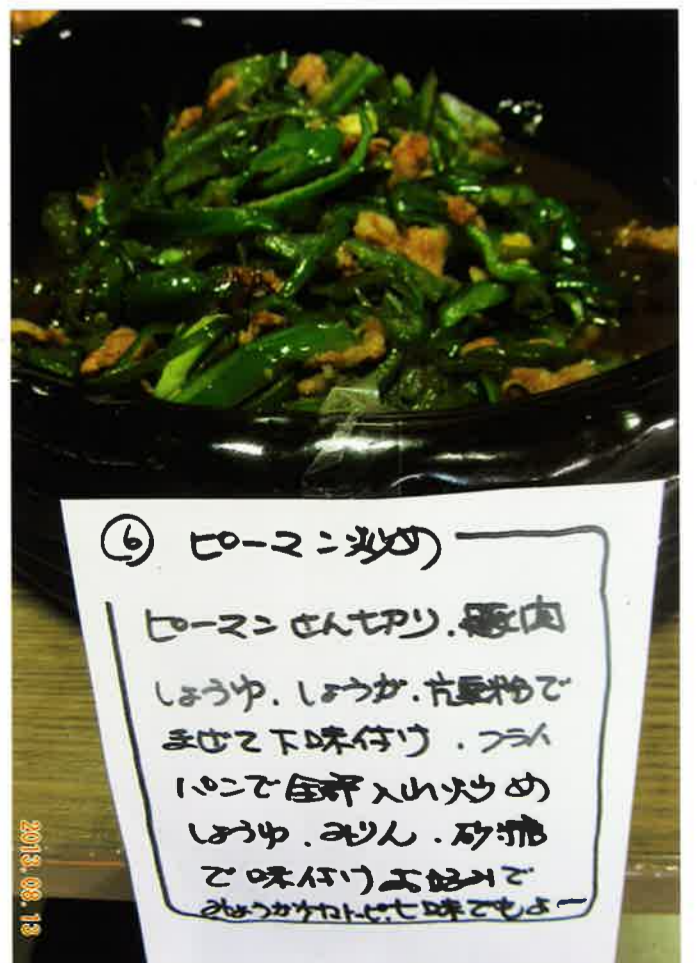 ⑥ ピーマン炒め
ピーマンせん切り、豚肉
しょうゆ、しょうが、片栗粉で
まぜて下味付け、フライ
パンで全部入れ炒め
しょうゆ、みりん、砂糖
で味付けお好みで
七味でもよー
2013.08.13